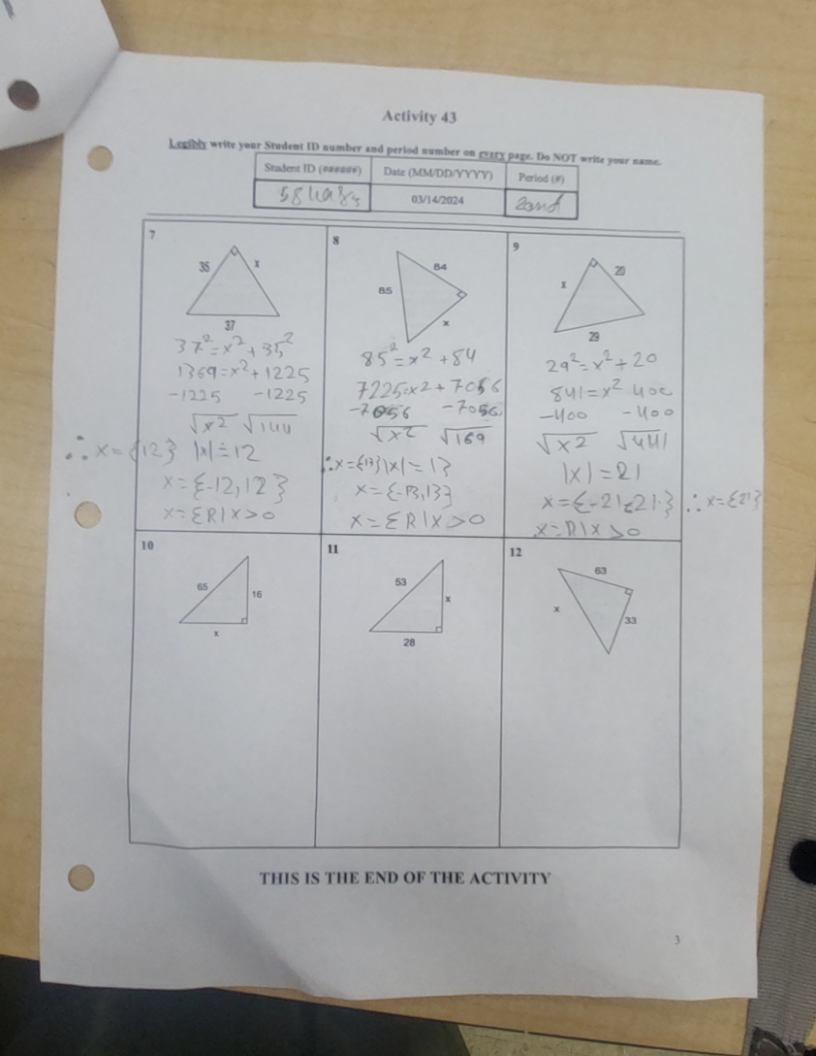 Activity 43
Legibly write your Student ID number and period number on every page. Do NOT write your name.
Student ID (######) Date (MM/DD/YYYY) Period (#)
03/14/2024
7
35 x
37
37²=x²+35²
1369=x²+1225
-1225 -1225
√x² √144
∴ x={12} |x|=12
x={-12,12}
x={R|x>0
8
84
85
x
85²=x²+84
7225=x2+7056
-7056 -7056
√x² √169
∴x={13} |x|=13
x={-13,13}
x={R|x>0
9
20
x
29
29²=x²+20
841=x² 400
-400 -400
√x2 √441
|x|=21
x={-21,21} ∴x={21}
x=R|x>0
10
65 16
x
11
53
x
28
12
63
x
33
THIS IS THE END OF THE ACTIVITY
3